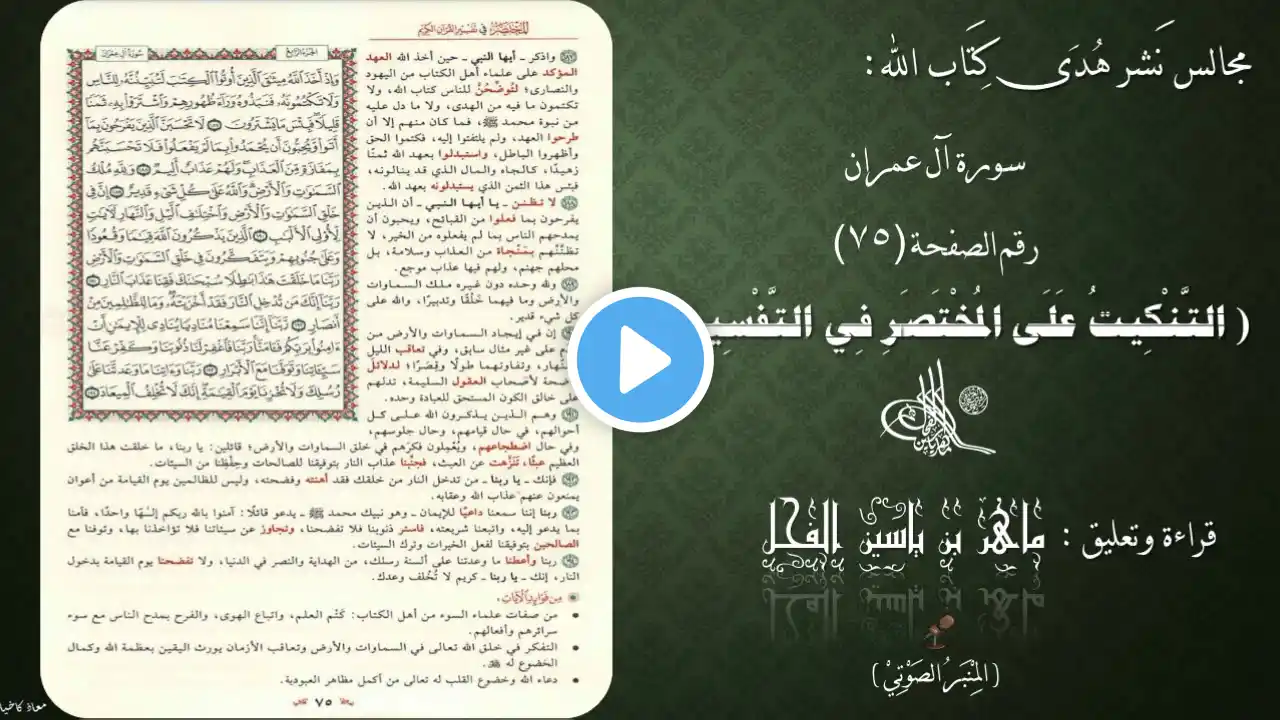 مجالس نَشر هُدَى كِتَاب الله:
سورة آل عمران
رقم الصفحة (٧٥)
( التَّنْكِيتُ عَلَى المُخْتَصَرِ فِي التَّفْسِي
قراءة وتعليق : ماهر بن ياسين الفحل
(المِنْبَرُ الصَّوْتِيّ)
المختصر في تفسير القرآن الكريم
سورة آل عمران
الجزء الرابع
وَإِذْ أَخَذَ اللَّهُ مِيثَاقَ الَّذِينَ أُوتُوا الْكِتَابَ لَتُبَيِّنُنَّهُ لِلنَّاسِ
وَلَا تَكْتُمُونَهُ فَنَبَذُوهُ وَرَاءَ ظُهُورِهِمْ وَاشْتَرَوْا بِهِ ثَمَنًا
قَلِيلًا فَبِئْسَ مَا يَشْتَرُونَ ١٨٧ لَا تَحْسَبَنَّ الَّذِينَ يَفْرَحُونَ بِمَا
أَتَوا وَّيُحِبُّونَ أَن يُحْمَدُوا بِمَا لَمْ يَفْعَلُوا فَلَا تَحْسَبَنَّهُم
بِمَفَازَةٍ مِّنَ الْعَذَابِ وَلَهُمْ عَذَابٌ أَلِيمٌ ١٨٨ وَلِلَّهِ مُلْكُ
السَّمَاوَاتِ وَالْأَرْضِ وَاللَّهُ عَلَى كُلِّ شَيْءٍ قَدِيرٌ ١٨٩ إِنَّ فِي
خَلْقِ السَّمَاوَاتِ وَالْأَرْضِ وَاخْتِلَافِ اللَّيْلِ وَالنَّهَارِ لَآيَاتٍ
لِّأُولِي الْأَلْبَابِ ١٩٠ الَّذِينَ يَذْكُرُونَ اللَّهَ قِيَامًا وَقُعُودًا
وَعَلَى جُنُوبِهِمْ وَيَتَفَكَّرُونَ فِي خَلْقِ السَّمَاوَاتِ وَالْأَرْضِ
رَبَّنَا مَا خَلَقْتَ هَذَا بَاطِلًا سُبْحَانَكَ فَقِنَا عَذَابَ النَّارِ ١٩١
رَبَّنَا إِنَّكَ مَن تُدْخِلِ النَّارَ فَقَدْ أَخْزَيْتَهُ وَمَا لِلظَّالِمِينَ مِنْ
أَنصَارٍ ١٩٢ رَّبَّنَا إِنَّنَا سَمِعْنَا مُنَادِيًا يُنَادِي لِلْإِيمَانِ أَنْ
آمِنُوا بِرَبِّكُمْ فَآمَنَّا رَبَّنَا فَاغْفِرْ لَنَا ذُنُوبَنَا وَكَفِّرْ عَنَّا
سَيِّئَاتِنَا وَتَوَفَّنَا مَعَ الْأَبْرَارِ ١٩٣ رَبَّنَا وَآتِنَا مَا وَعَدتَّنَا عَلَى
رُسُلِكَ وَلَا تُخْزِنَا يَوْمَ الْقِيَامَةِ إِنَّكَ لَا تُخْلِفُ الْمِيعَادَ ١٩٤
واذكر ـ أيها النبي ـ حين أخذ الله العهد
المؤكد على علماء أهل الكتاب من اليهود
والنصارى؛ لتُوضِّحُنَّ للناس كتاب الله، ولا
تكتمون ما فيه من الهدى، ولا ما دل عليه
من نبوة محمد ﷺ، فما كان منهم إلا أن
طرحوا العهد، ولم يلتفتوا إليه، فكتموا الحق
وأظهروا الباطل، واستبدلوا بعهد الله ثمنًا
زهيدًا، كالجاه والمال الذي قد ينالونه،
فبئس هذا الثمن الذي يستبدلونه بعهد الله.
لا تظنن ـ يا أيها النبي ـ أن الذين
يفرحون بما فعلوا من القبائح، ويحبون أن
يمدحهم الناس بما لم يفعلوه من الخير، لا
تظنَّنَّهم بمَنْجاة من العذاب وسلامة، بل
محلهم جهنم، ولهم فيها عذاب موجع.
ولله وحده دون غيره ملك السماوات
والأرض وما فيهما خَلْقًا وتدبيرًا، والله على
كل شيء قدير.
إن في إيجاد السماوات والأرض من
على غير مثال سابق، وفي تعاقب الليل
والنهار، وتفاوتهما طولًا وقِصَرًا؛ لدلائل
لأصحاب العقول السليمة، تدلهم
على خالق الكون المستحق للعبادة وحده.
وهم الذين يذكرون الله على كل
أحوالهم، في حال قيامهم، وحال جلوسهم،
وفي حال اضطجاعهم، ويُعْمِلون فكرَهم في خلق السماوات والأرض؛ قائلين: يا ربنا، ما خلقت هذا الخلق
العظيم عبثًا، تَنَزَّهت عن العبث، فجنِّبنا عذاب النار بتوفيقنا للصالحات وحِفْظِنا من السيئات.
فإنك ـ يا ربنا ـ من تدخل النار من خلقك فقد أهنته وفضحته، وليس للظالمين يوم القيامة من أعوان
يمنعون عنهم عذاب الله وعقابه.
ربنا إننا سمعنا داعيًا للإيمان ـ وهو نبيك محمد ﷺ ـ يدعو قائلًا: آمنوا بالله ربكم إلهًا واحدًا، فآمنا
بما يدعو إليه، واتبعنا شريعته، فاستر ذنوبنا فلا تفضحنا، وتجاوز عن سيئاتنا فلا تؤاخذنا بها، وتوفنا مع
الصالحين بتوفيقنا لفعل الخيرات وترك السيئات.
ربنا وأعطنا ما وعدتنا على ألسنة رسلك، من الهداية والنصر في الدنيا، ولا تفضحنا يوم القيامة بدخول
النار، إنك ـ يا ربنا ـ كريم لا تُخْلف وعدك.
من فوائد الآيات:
• من صفات علماء السوء من أهل الكتاب: كَتْم العلم، واتباع الهوى، والفرح بمدح الناس مع سوء
سرائرهم وأفعالهم.
• التفكر في خلق الله تعالى في السماوات والأرض وتعاقب الأزمان يورث اليقين بعظمة الله وكمال
الخضوع له
• دعاء الله وخضوع القلب له تعالى من أكمل مظاهر العبودية.
٧٥